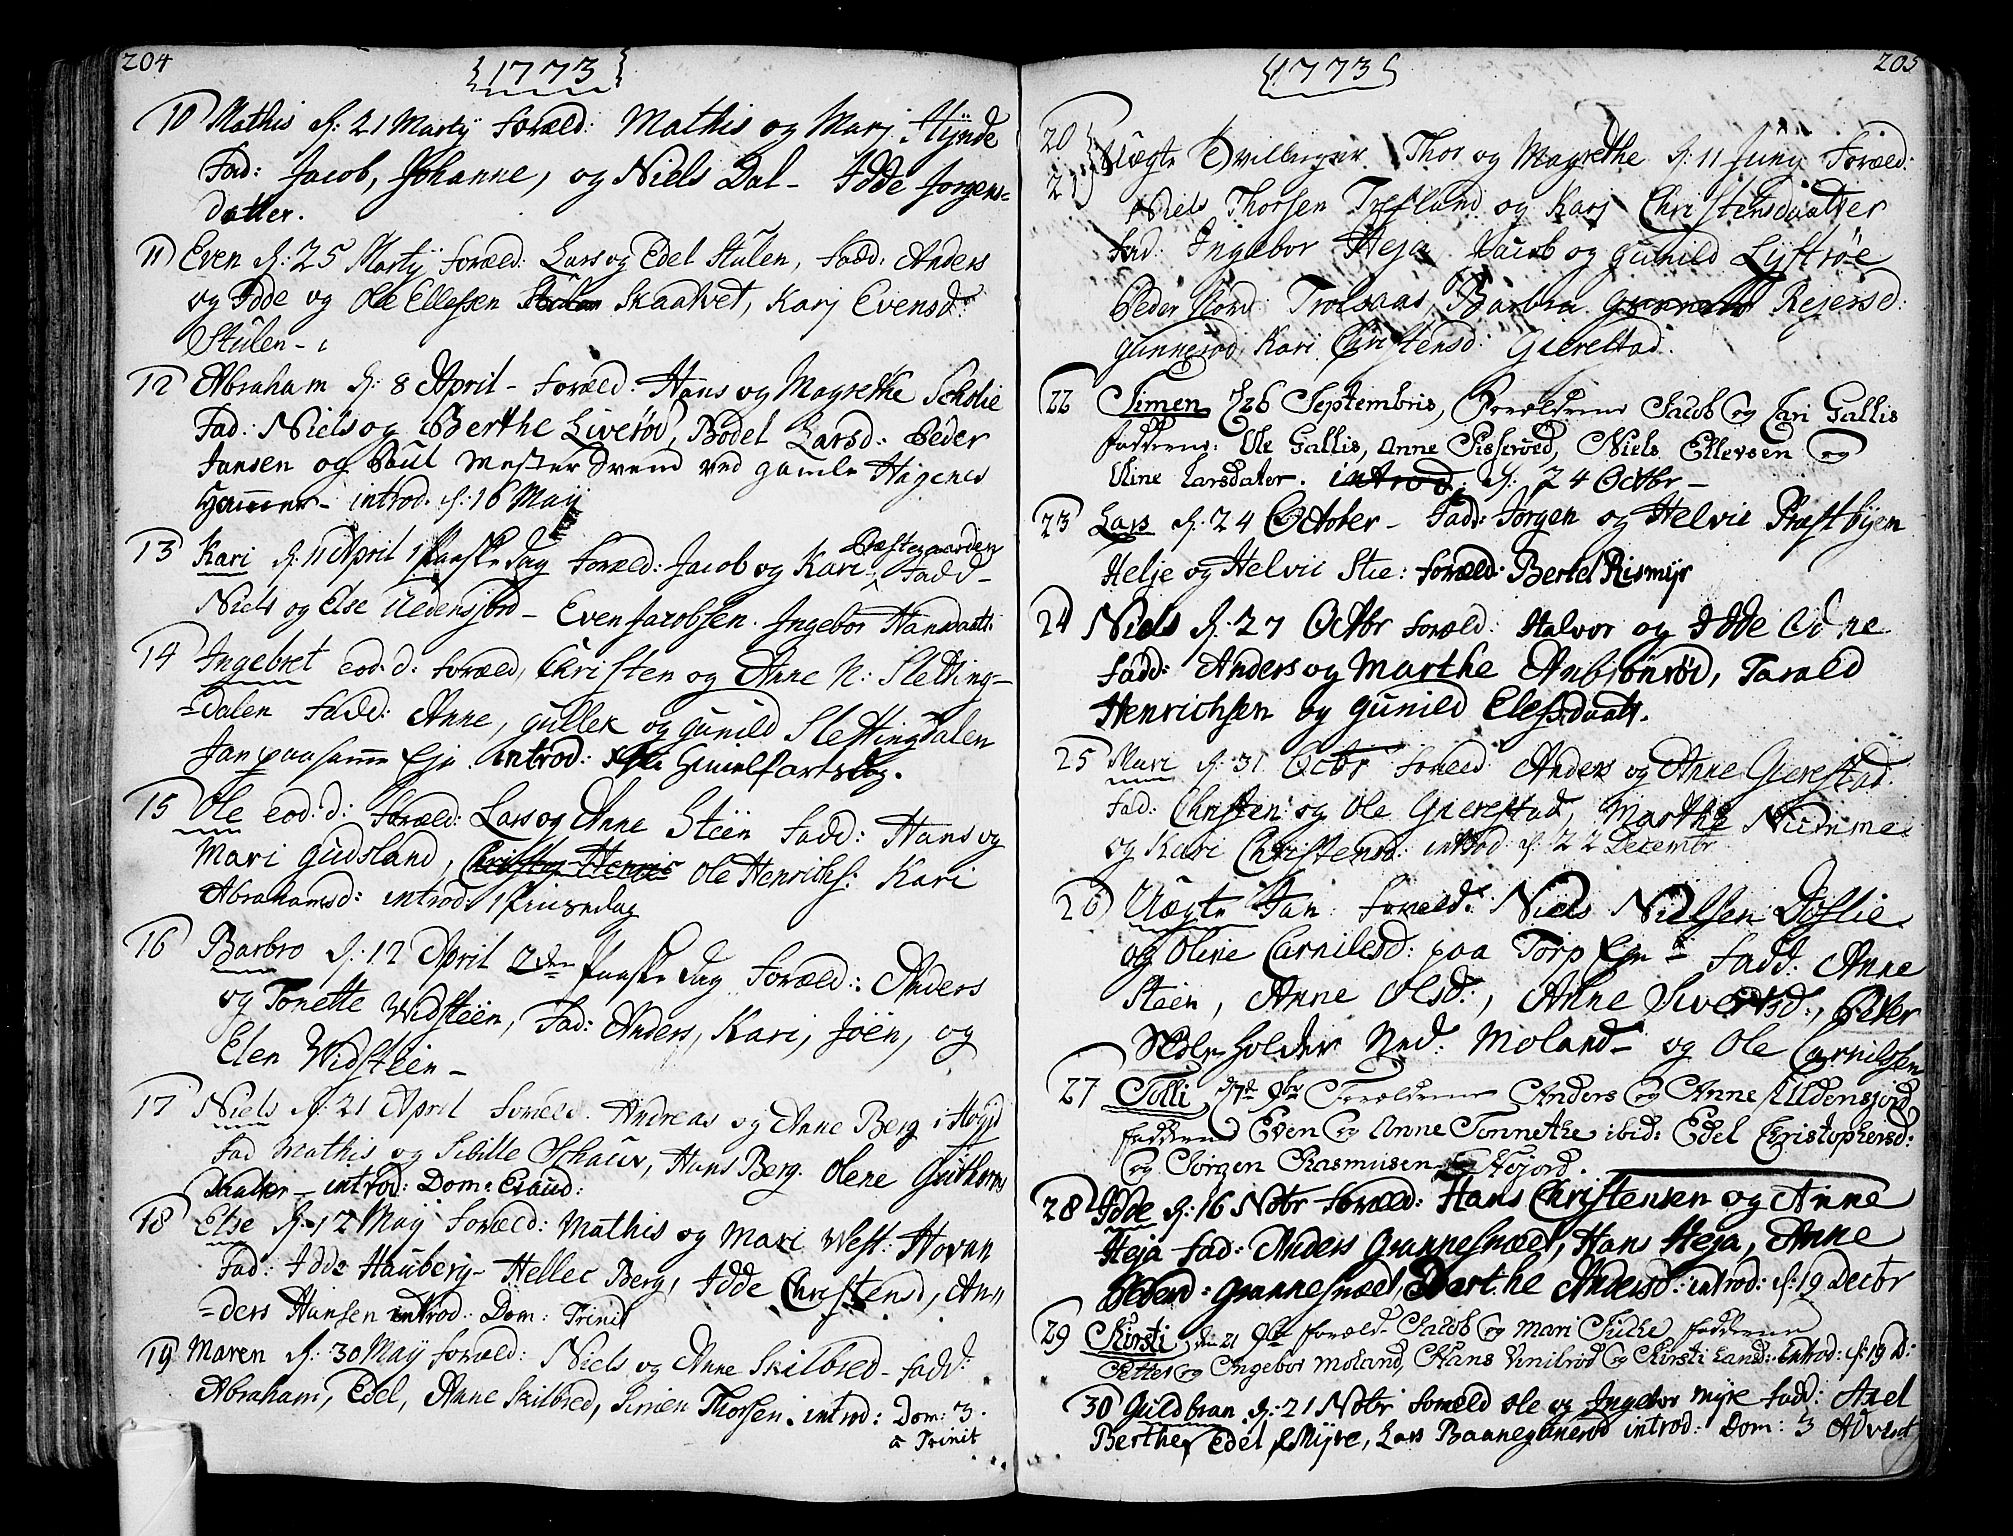 204
1773
10 Mathis d: 21 Martij Foræld: Mathis og Marj Hynde
Fad: Jacob, Johanne, og Niels Dal - Idde Jorgens-
datter.
11 Even d: 25 Martij foræld: Lars og Edel Stulen, fadd: Anders
og Idde og Ole Ellefsen Skaatvet, Karj Evensd:
Stulen -
12 Abraham d: 8 April - foræld: Hans og Magrethe Scholie
Fad: Niels og Berthe Liverød, Bodel Larsd: Peder
Jansen og Poul Mester Svend ved gamle Hagenes
Hammer - introd. d: 16 Maij
13 Kari d: 11 April 1 Paaske dag Foræld: Jacob og Kari Præstegaarden, Fadd-
Niels og Else Uldensjord - Even Jacobsen. Ingebor Hansdaatt:
14 Ingebret eod. d: foræld, Christen og Anne N: Sletting-
=dalen fadd: Anne, gullek og gunild Slettingdalen
Jan paa samme Eje. introd: Himelfartsdag.
15 Ole eod: d: foræld: Lars og Anne Steen fadd: Hans og
Mari Gudsland, Ole Henrichs: Kari
Abrahamsd: introd: 1 Pinsedag
16 Barbro d: 12 April 2den Paaske dag foræld: Anders
og Tonette Widsteen, Fad: Anders, Kari, Jöen, og
Elen Widsteen -
17 Niels d: 21 April foræld. Andreas og Anne Berg i Hogd
fad Mathis og Sibille Schauv, Hans Berg. Olene Guthorms
Daatter - introd: Dom: Exaud:
18 Else d: 12 Maij foræld: Mathis og Mari West: Hovan
Fad: Idde Hauberg - Hellec Berg, Idde Christensd, An=
=ders Hansen introd: Dom: Trinit
19 Maren d: 30 Maij foræld: Niels og Anne Skilbred - fadd:
Abraham, Edel, Anne Skilbred, Simen Thorsen. introd: Dom: 3.
a Trinit
205
1773
20
21 Uægte Tvillinger Thor og Magrethe d: 11 Junij Foræld:
Niels Thorsen Trefland og Karj Christensdaatter
fad. Ingebor Heja Jacob og gunild Lystrøe
Peder Nord Trolvaas, Barbra Rejersd:
Gunnerød, Kari Christensd: Gierestad.
22 Simen d 26 Septembris, Forældrene Jacob og Cari Gallis
fadderne: Ole Gallis, Anne Pisserød, Niels Ellevsen og
Aline Larsdater. introd. d. 24 Octbr -
23 Lars d. 24 October - Fadd: Jorgen og Helvic Præstbyen
Helje og Helvic Stie: foræld: Bertel Rismyr
24 Niels d. 27 Octbr foræld: Halvor og Idde Odne
fadd: Anders og Marthe Anbjönrød, Tarald
Henrichsen og gunild Elefsdaatt.
25 Mari d: 31 Octbr foræld Anders og Anne Gierestad.
fad: Christen og Ole Gierestad, Marthe Numme
og Kari Christensd: introd d: 22 Decembr
26 Uægte Jan foræld: Niels Nielsen Döslie
og Olene Carnilesd: paa Torp Eje fadd: Anne
Steen, Anne Olsd:, Anne Sivertsd:, Peter
Skoleholder Ned: Moland - og Ole Carnilssen
27 Tolli 9br Forældrene Anders og Anne Uldensjord
fadderne Even og Anne Tonnethe ibid: Edel Christophersd:
og Jørgen Rasmusen Hejord.
28 Idde d: 16 Nobr foræld: Hans Christensen og Anne
Heja fad: Anders Grannesnæet, Hans Heja, Anne
Pedersd: grannesnæet, Dorthe Andersd: introd: d: 19 Decbr
29 Kirsti den 21 9br foræld- Jacob og Mari fadderne
Petter og Ingebor Moland, Hans Vnilrod og Kirsti Landi: introd: d: 19 D:
30 Guldbran d: 21 Nobr foræld Ole og Ingebor Myre fadd: Axel
Berthe, Edel Myre, Lars Baanegunerød introd: Dom: 3 Advent